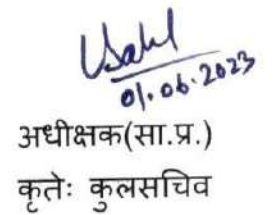 01.06.2023
अधीक्षक(सा.प्र.)
कृतेः कुलसचिव